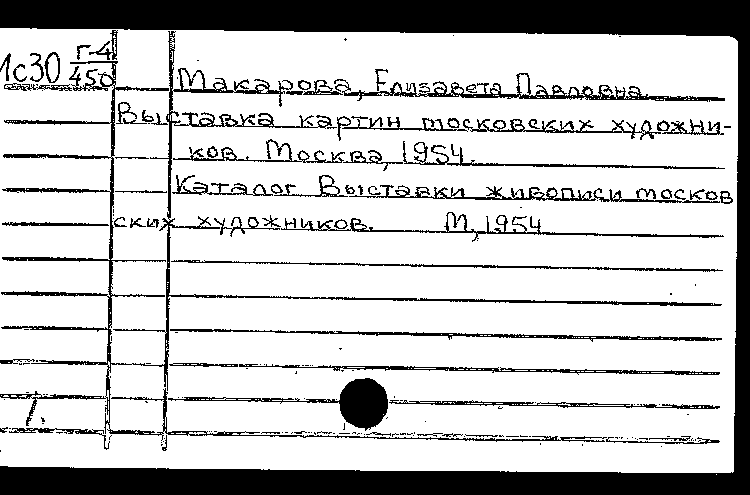 1с30 Г-4/450
Макарова, Елизавета Павловна.
Выставка картин московских художни-
ков. Москва, 1954.
Каталог Выставки живописи москов
ских художников. М, 1954
1.